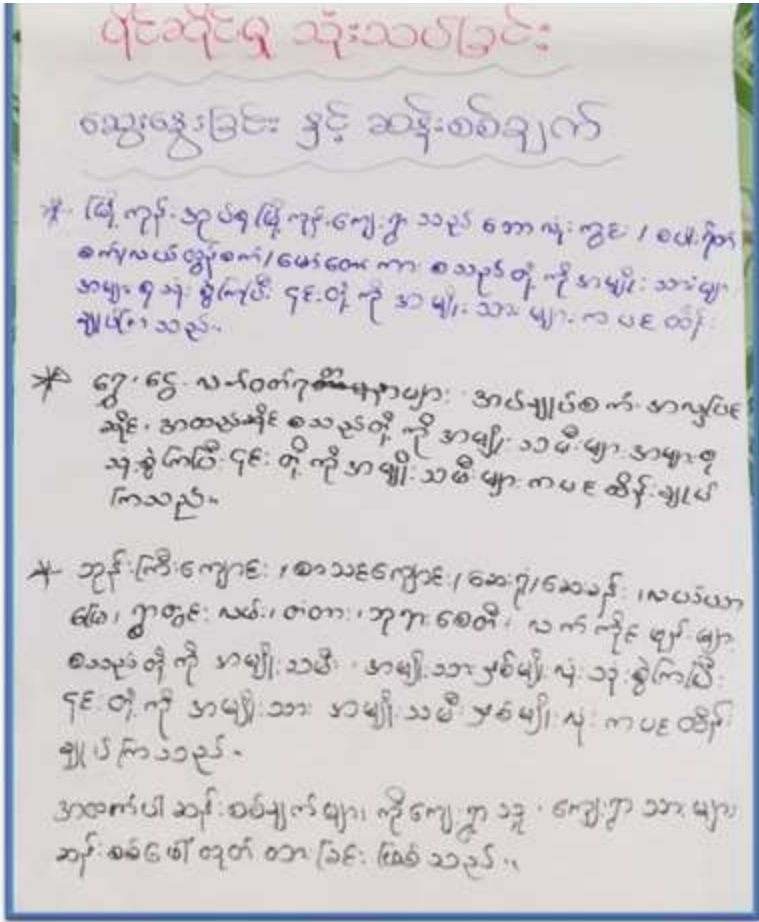 ပိုင်ဆိုင်မှု သုံးသပ်ခြင်း
ဆွေးနွေးခြင်း နှင့် ဆန်းစစ်ချက်
* မြို့ကုန်းအုပ်စု မြို့ကုန်းကျေးရွာ သည် ဘောလုံးကွင်း / စပါးရိတ်
စက်/လယ်ထွန်စက်/မော်တော်ကား စသည်တို့ကို အမျိုးသားများ
အများစု သုံးစွဲကြပြီး ၎င်းတို့ကို အမျိုးသားများက ပဲ ထိန်း
ချုပ်ကြသည်။
* ရွှေ၊ ငွေ လက်ဝတ်ရတနာများ၊ အပ်ချုပ်စက်၊ အလှပြင်
ဆိုင်၊ အထည်ဆိုင် စသည်တို့ကို အမျိုးသမီးများ အများစု
သုံးစွဲကြပြီး ၎င်းတို့ကို အမျိုးသမီးများကပဲ ထိန်းချုပ်
ကြသည်။
* ဘုန်းကြီးကျောင်း / စာသင်ကျောင်း / ဆေးရုံ/ဆေးခန်း ၊လယ်ယာ
မြေ၊ ရွာတွင်းလမ်း၊ တံတား၊ ဘုရားစေတီ၊ လက်ကိုင်ဖုန်းများ
စသည်တို့ကို အမျိုးသမီး ၊ အမျိုးသား နှစ်မျိုးလုံး သုံးစွဲကြပြီး
၎င်းတို့ကို အမျိုးသား အမျိုးသမီး နှစ်မျိုးလုံးကပဲ ထိန်း
ချုပ်ကြသည်။
အထက်ပါ ဆန်းစစ်ချက်များ ကို ကျေးရွာသူ ၊ ကျေးရွာသားများ
ဆန်းစစ်ဖော်ထုတ် ထားခြင်း ဖြစ်သည်။